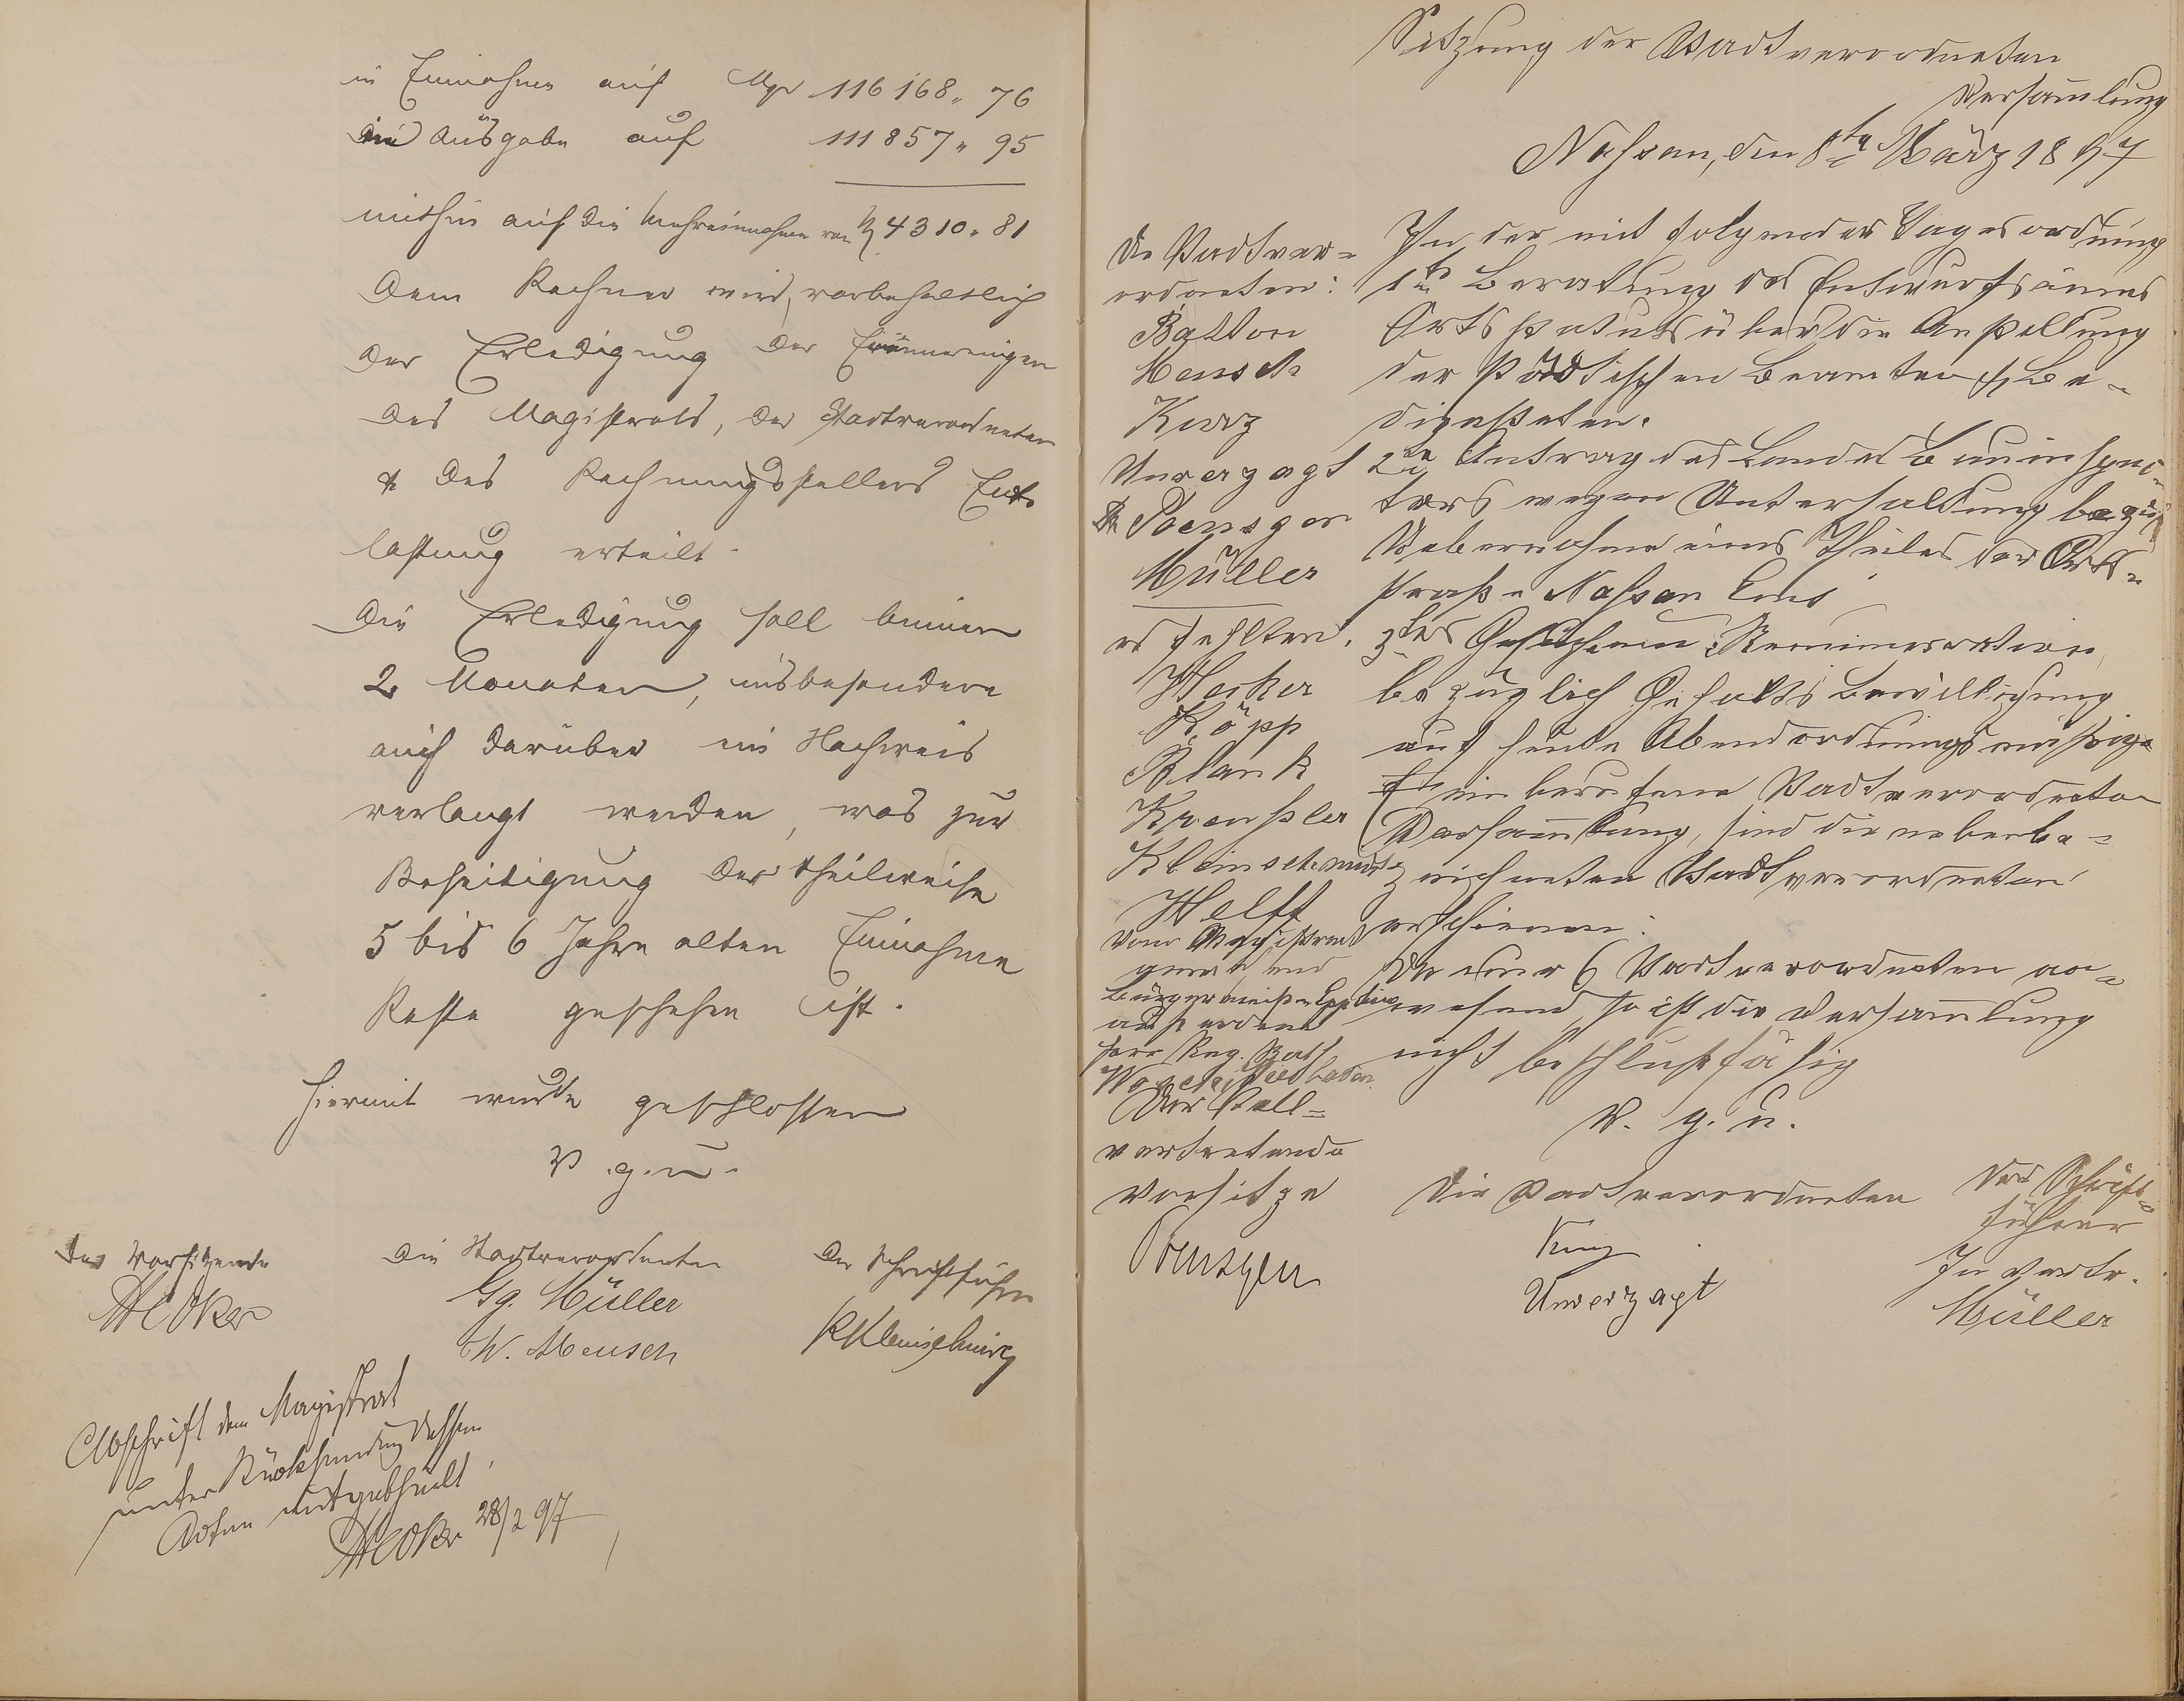 in Einnahme auf Mgr 116 168 " 76
in Ausgabe auf 111 857 " 95
mithin auf die Mehreinnahme von M 4310 " 81
Dem Rechner wird, vorbehaltlich
der Erledigung der Erinnerungen
des Magistrats, der Stadtverordneten
& des Rechnungsstellers Ent-
lastung erteilt.
Die Erledigung soll binnen
2 Monaten, insbesondere
auch darüber ein Nachweis
verlangt werden, was zur
Beseitigung der theilweise
5 bis 6 Jahre alten Einnahme
Reste geschehen ist.
Hiermit wurde geschlossen
V. g. u.
Der Vorsitzende
Hecker
Die Stadtverordneten
Gg. Müller
W. Mensch
Der Schriftführer
Kleinschmidt
Abschrift dem Magistrat
unter Rücksendung dessen
Acten mitgetheilt
Hecker 28/2 97
Sitzung der Stadtverordneten
Versammlung
Nassau, den 8ten März 1897
Die Stadtver=
ordneten:
Balton
Mensch
Kurz
Unverzagt
Dr Poensgen
Müller
es fehlten.
Hecker
Köpp
Blank
Kreußler
Kleinschmidt
Helff
vom Magistrat
Bürgermeister
außerdem
Herr Reg. Rath
Wiesbaden
Der stell=
vertretende
Vorsitze
Poensgen
In der mit folgender Tagesordnung
1te Beratung des Entwurfs eines
Ortsstatuts über die Anstellung
der städtischen Beamten & Be-
diensteten.
2te Antrag des Landes Bauinspec-
tors wegen Unterhaltung bezw
Uebernahme eines Theiles der Orts-
straße Nassau Ems
3tes Gesuch um Remuneration
bezüglich Gehalts Bewilligung
auf heute Abend ordnungsmäßige
Einberufene Stadtverordneten
Versammlung, sind die nebenbe=
zeichneten Stadtverordneten
erschienen.
Da nur 6 Stadtverordneten an=
wesend, so ist die Versammlung
nicht beschlußfähig
V. g. u.
Die Stadtverordneten
Kurz
Unverzagt
Der Schrift=
führer
In Vertr.
Müller